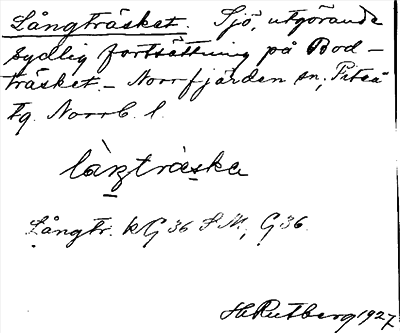 Långträsket. Sjö, utgörande
sydlig fortsättning på Bod-
träsket. – Norrfjärden sn, Piteå
tg. Norrb. l.
làŋtràska
Långtr. kG 36 S M, G 36.
H Rutberg 1927